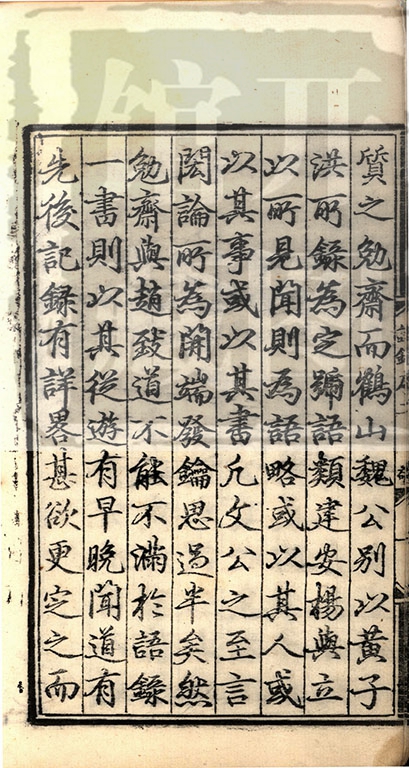 質之勉齋而鶴山魏公别以黃子
洪所錄為定號語類建安楊與立
以所見聞則為語略或以其人或
以其事或以其書凢文公之至言
閎論所為開端發鑰思過半矣然
勉齋與趙致道不能不滿於語錄
一書則以其從遊有早晚聞道有
先後記録有詳畧甚欲更定之而